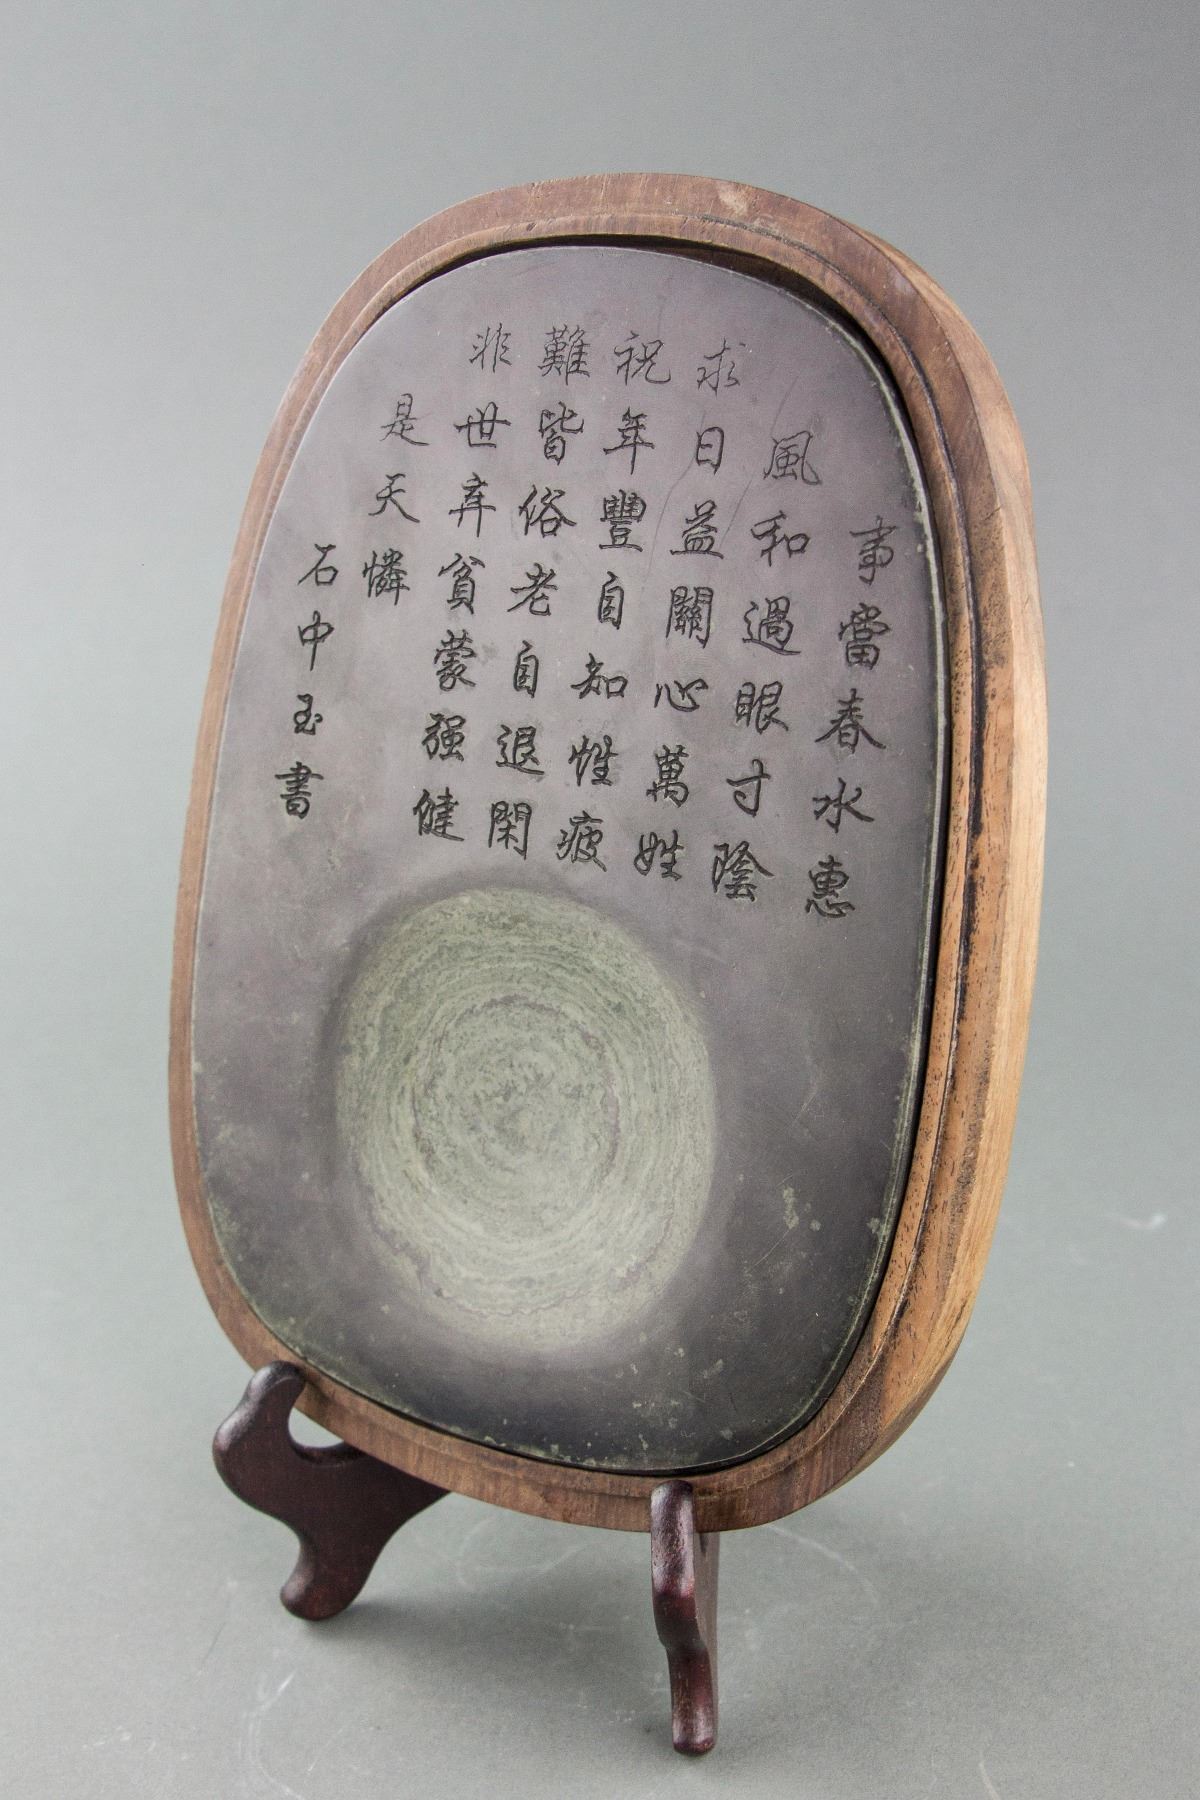 事當春水惠
風和過眼寸陰
求日益關心萬姓
祝年豐自知性疲
難皆俗老自退閑
非世弃貧蒙强健
是天憐
石中玉書